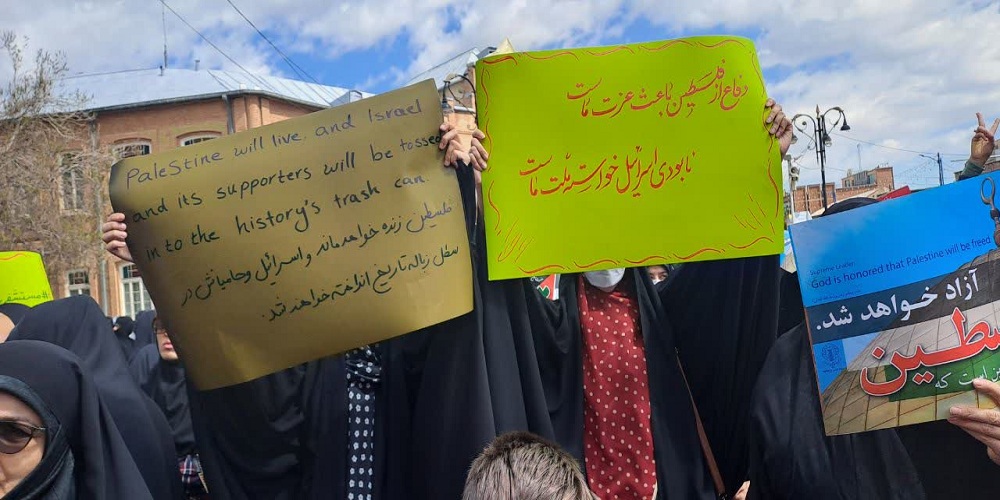 Palestine will live and Israel
and its supporters will be tossed
in to the history's trash can.
فلسطین زنده خواهد ماند و اسرائیل و حامیانش در
سطل زباله تاریخ انداخته خواهند شد.
دفاع از فلسطین باعث عزت ماست
نابودی اسرائیل خواسته ملت ماست
Supreme Leader:
God is honored that Palestine will be freed
آزاد خواهد شد.
فلسطین
است که